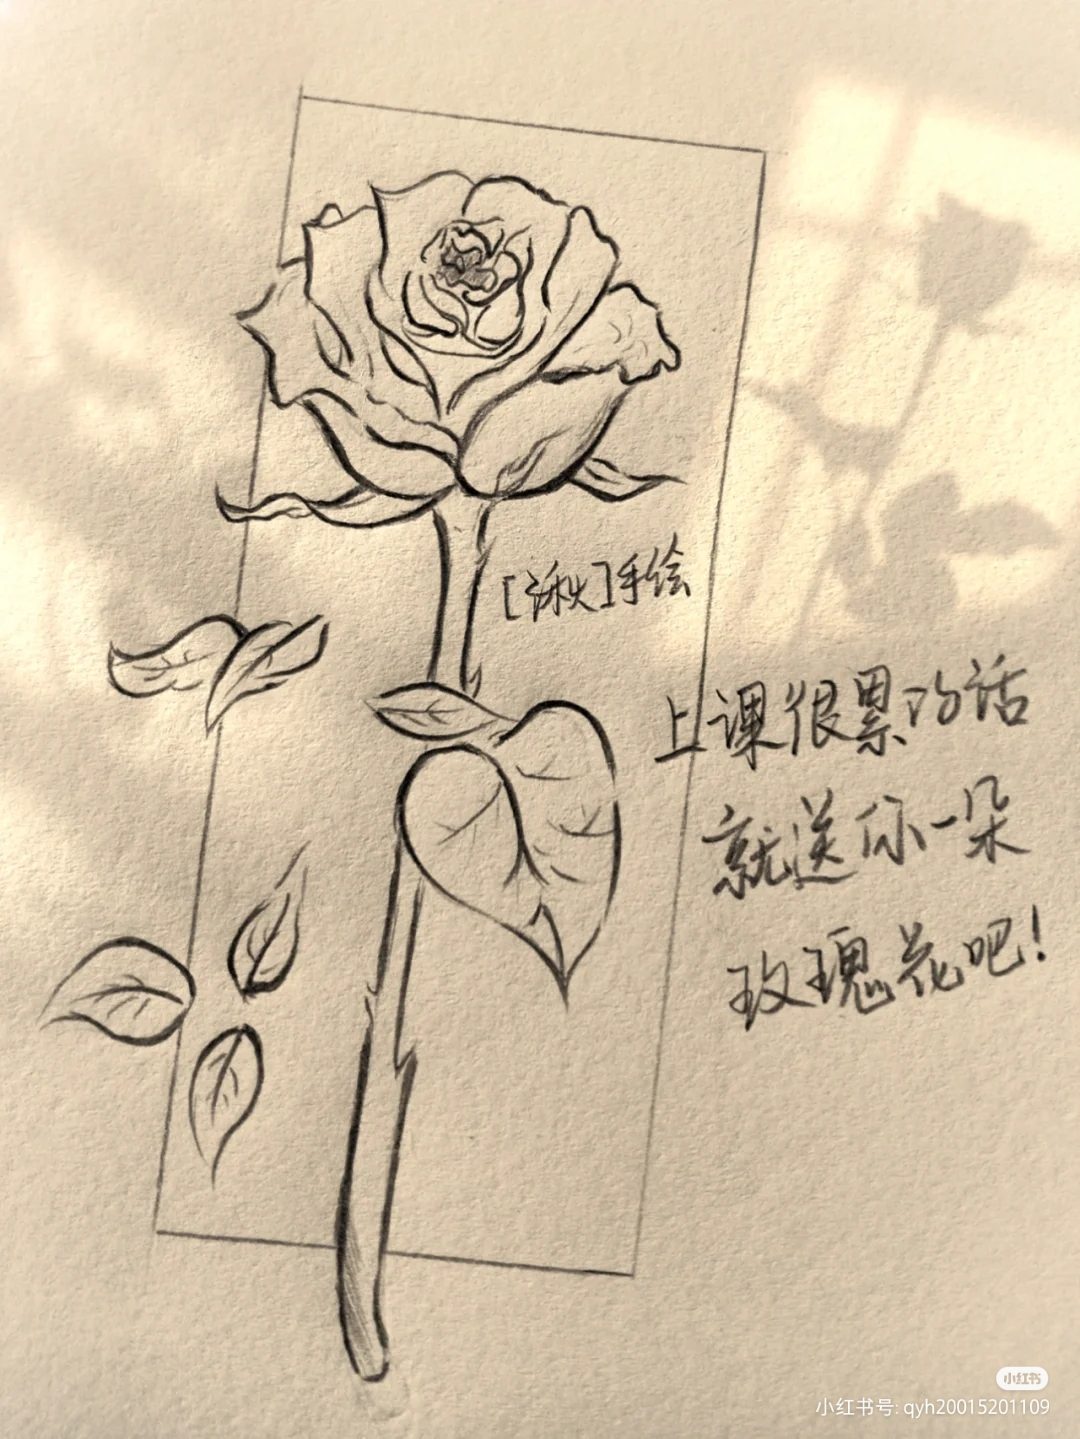 手绘
上课很累的话
就送你一朵
玫瑰花吧!
小红书
小红书号: qyh20015201109